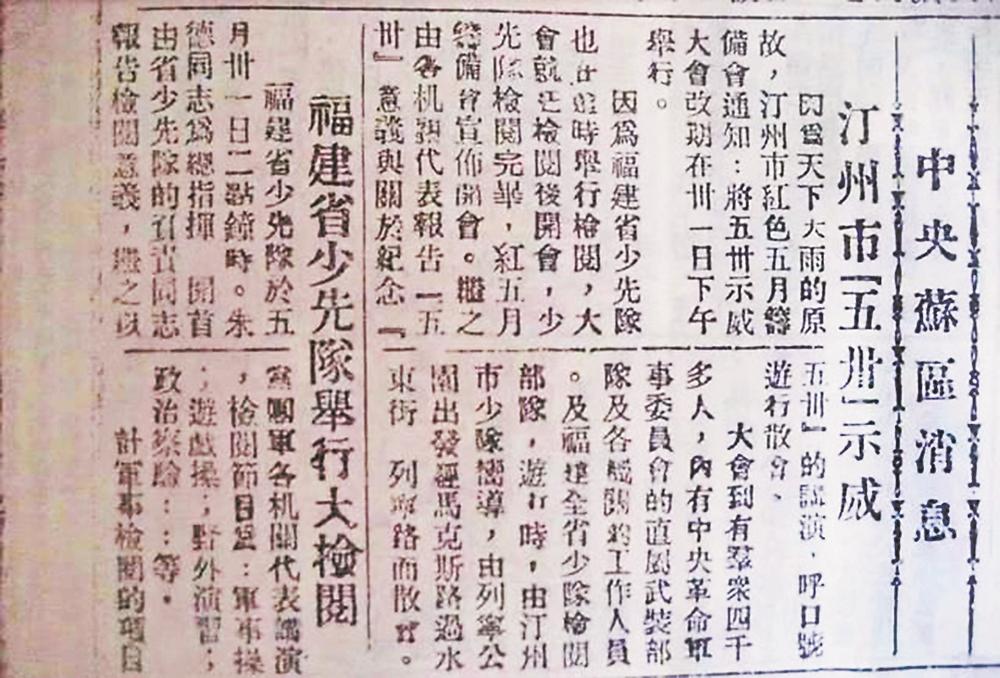 中央蘇區消息
汀州市「五卅」示威
因爲天下大雨的原
故，汀州市紅色五月籌
備會通知：將五卅示威
大會改期在卅一日下午
舉行。
因爲福建省少先隊
也在這時舉行檢閱，大
會就在檢閱後開會，少
先隊檢閱完畢，紅五月
籌備會宣佈開會。繼之
由各机關代表報告「五
卅』意義與關於紀念『
五卅』的講演，呼口號
遊行散會。
大會到有羣衆四千
多人，內有中央革命軍
事委員會的直屬武裝部
隊及各機關的工作人員
。及福建全省少隊檢閱
部隊，遊行時，由汀州
市少隊嚮導，由列寧公
園出發經馬克斯路過水
東街 列寧路而散會。
福建省少先隊舉行大檢閱
福建省少先隊於五
月卅一日二點鐘時。朱
德同志爲總指揮 開首
由省少先隊的負責同志
報告檢閱意義，繼之以
黨團軍各机關代表講演
，檢閱節目是：軍事操
；遊戲操；野外演習；
政治察驗：：等。
計軍事檢閱的項目